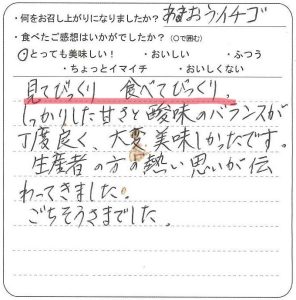 ・何をお召し上がりになりましたか？ あまおうイチゴ
・食べたご感想はいかがでしたか？（○で囲む）
・とっても美味しい！ ・おいしい ・ふつう
・ちょっとイマイチ ・おいしくない
見てびっくり 食べてびっくり。
しっかりした甘さと酸味のバランスが
丁度良く、大変美味しかったです。
生産者の方の熱い思いが伝
わってきました。
ごちそうさまでした。